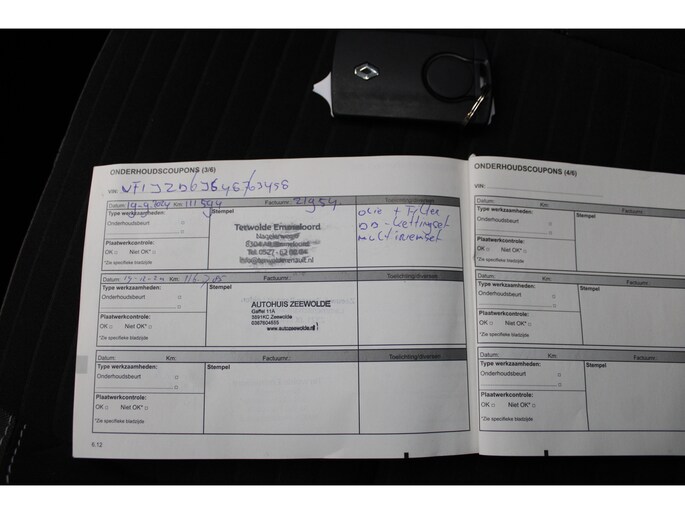 ONDERHOUDSCOUPONS (3/6)
VIN:
Datum: 19-9-2024 Km: 111594 Factuurnr.: 21954 Toelichting/diversen:
Type werkzaamheden: Stempel
Onderhoudsbeurt
Tetwolde Emmeloord
Olie + Filter
DD-kettingset
multiriemset
Plaatwerkcontrole:
OK Niet OK*
*Zie specifieke bladzijde
Datum: 19-12-24 Km: Factuurnr.: Toelichting/diversen:
Type werkzaamheden: Stempel
Onderhoudsbeurt
AUTOHUIS ZEEWOLDE
Gaffel 11A
3891KC Zeewolde
0367604655
www.autozeewolde.nl
Plaatwerkcontrole:
OK Niet OK*
*Zie specifieke bladzijde
Datum: Km: Factuurnr.: Toelichting/diversen:
Type werkzaamheden: Stempel
Onderhoudsbeurt
Plaatwerkcontrole:
OK Niet OK*
*Zie specifieke bladzijde
6.12
ONDERHOUDSCOUPONS (4/6)
VIN:
Datum: Km:
Type werkzaamheden:
Onderhoudsbeurt
Plaatwerkcontrole:
OK Niet OK*
*Zie specifieke bladzijde
Datum: Km:
Type werkzaamheden:
Onderhoudsbeurt
Plaatwerkcontrole:
OK Niet OK*
*Zie specifieke bladzijde
Datum: Km:
Type werkzaamheden:
Onderhoudsbeurt
Plaatwerkcontrole:
OK Niet OK*
*Zie specifieke bladzijde